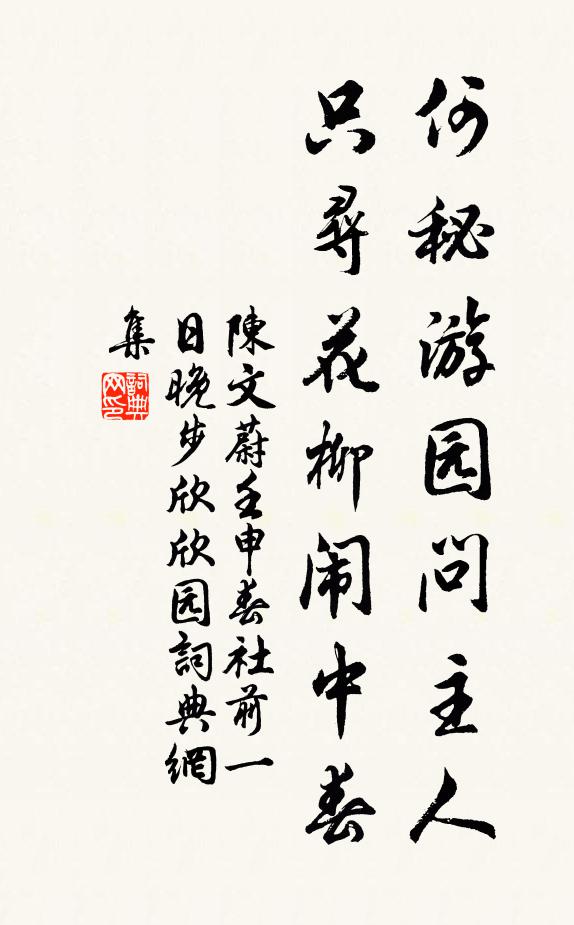 何秘游园问主人
只尋花柳闹中春
陳文蔚壬申春社前一
日晚步欣欣园詞典網
集
詞典网印